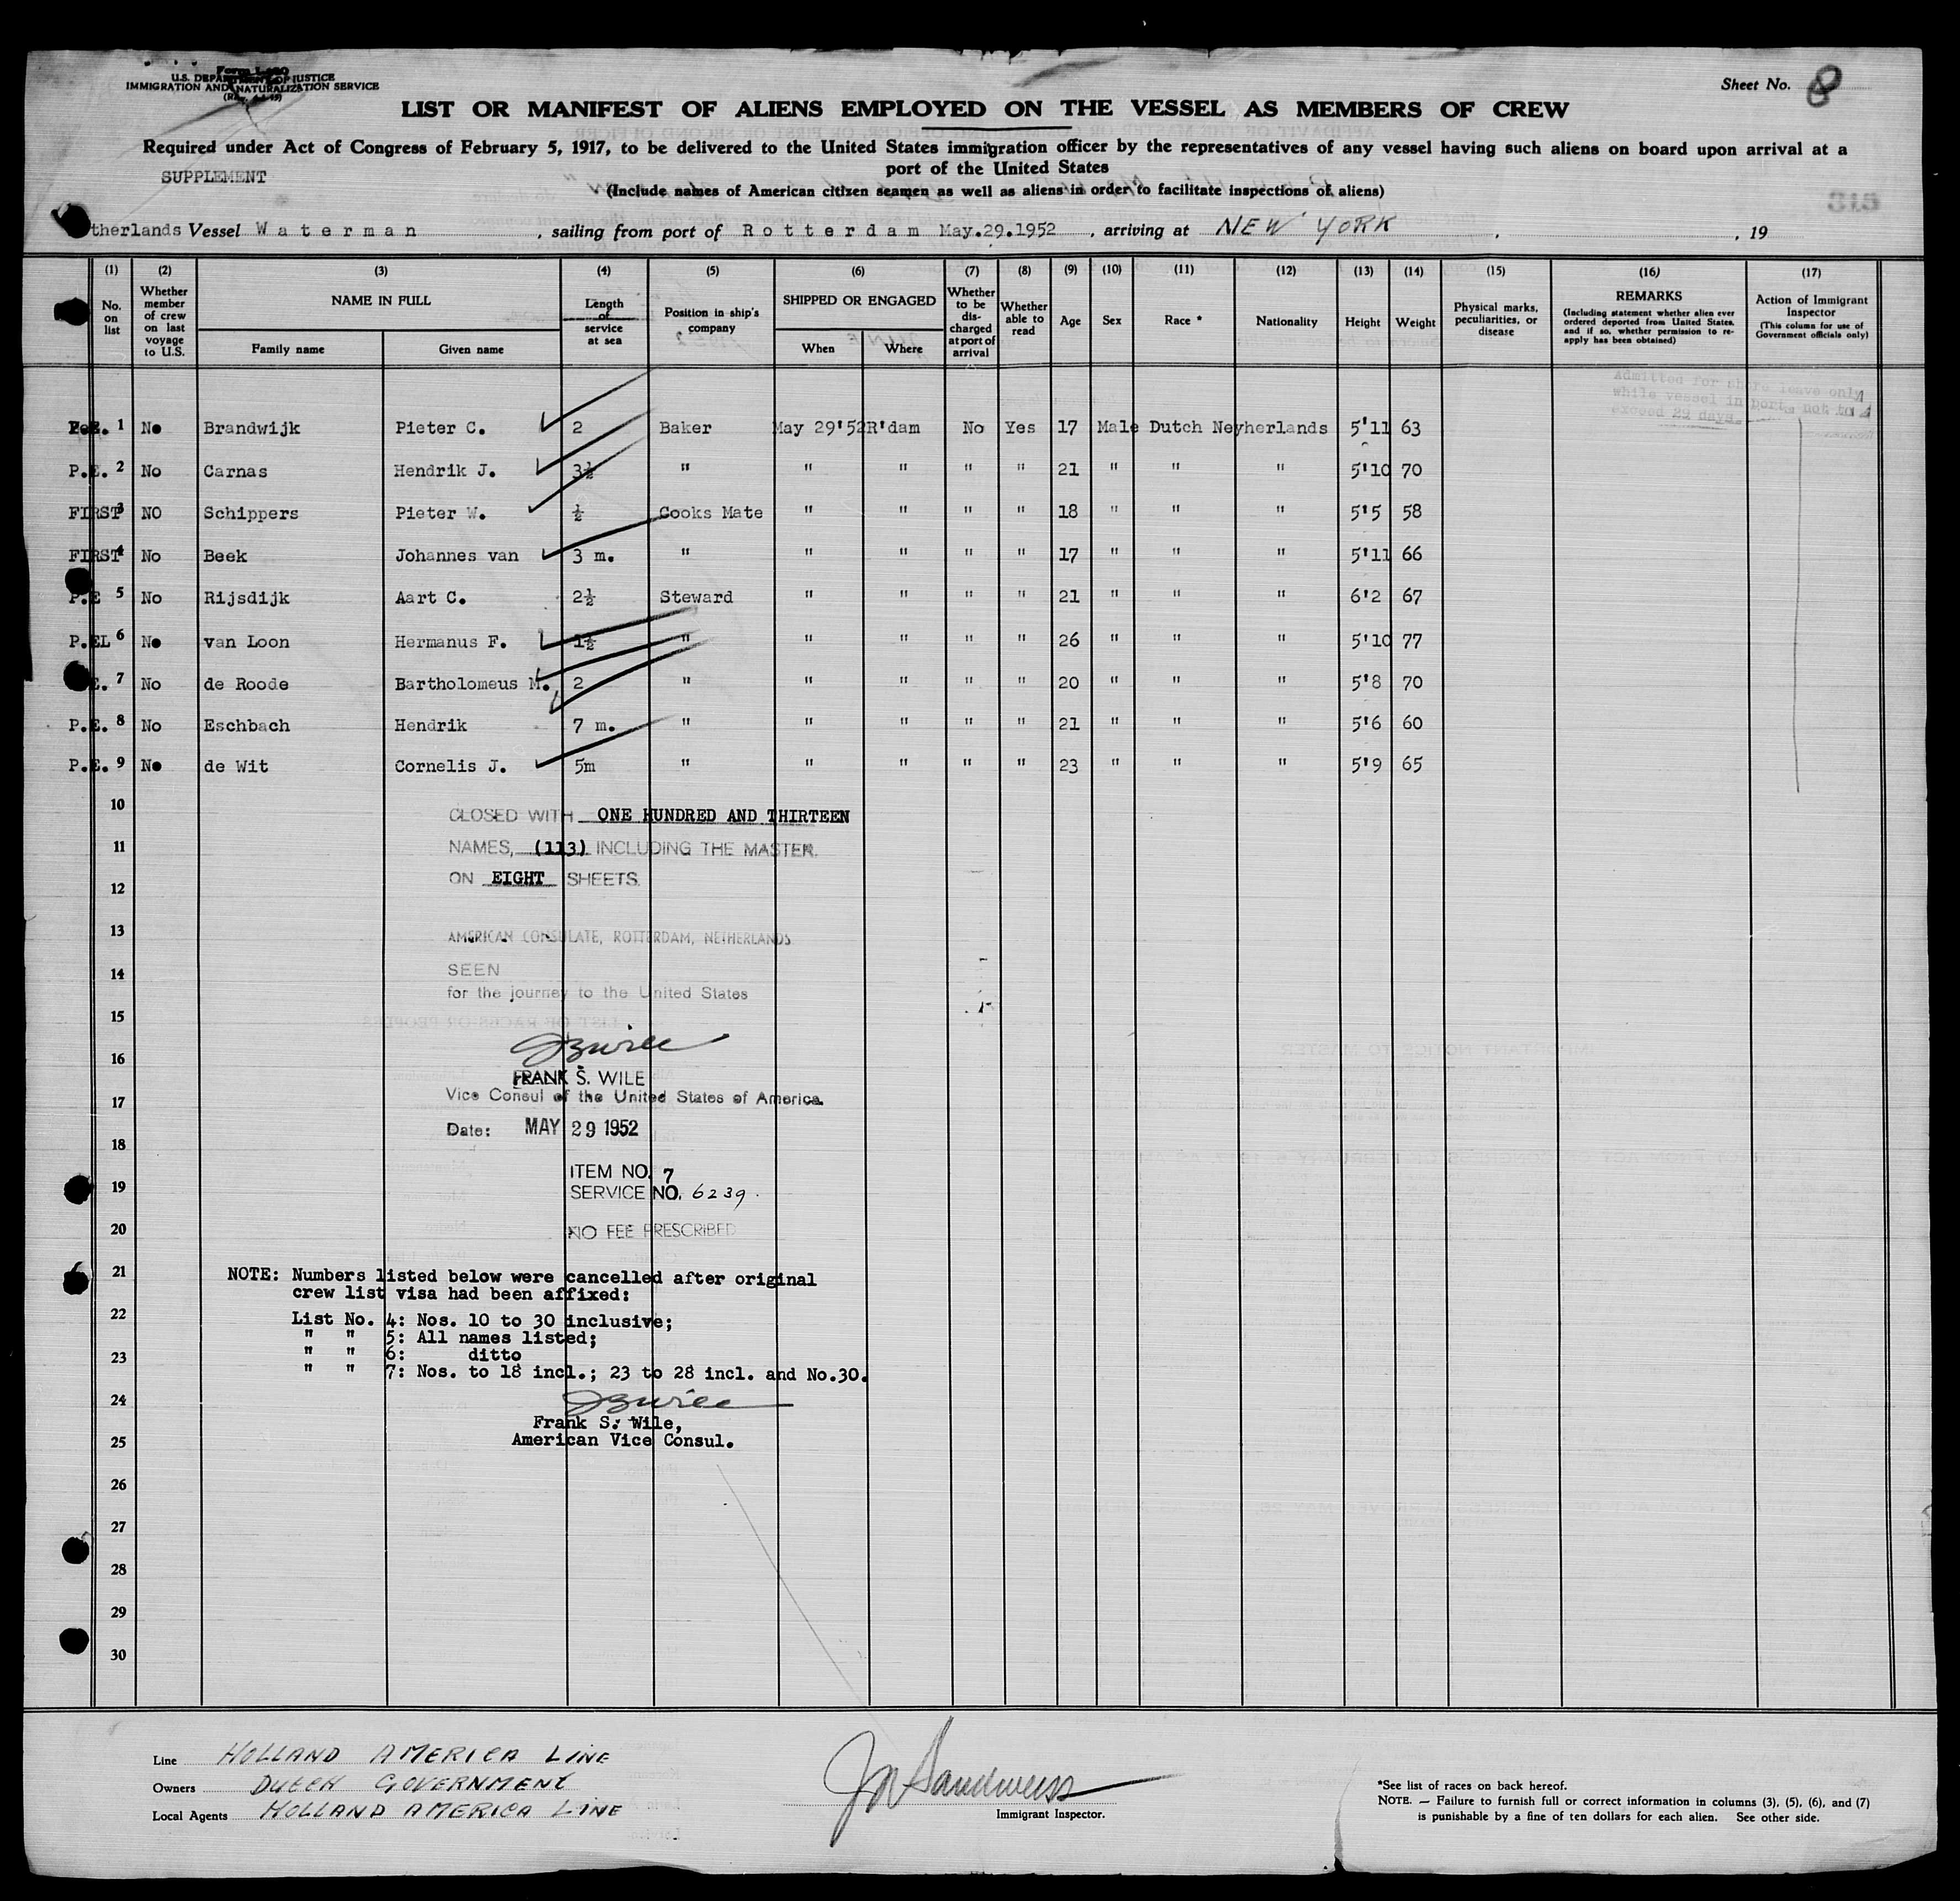 Form I-480
U.S. DEPARTMENT OF JUSTICE
IMMIGRATION AND NATURALIZATION SERVICE
Sheet No. 8
LIST OR MANIFEST OF ALIENS EMPLOYED ON THE VESSEL AS MEMBERS OF CREW
Required under Act of Congress of February 5, 1917, to be delivered to the United States immigration officer by the representatives of any vessel having such aliens on board upon arrival at a
port of the United States
SUPPLEMENT
(Include names of American citizen seamen as well as aliens in order to facilitate inspections of aliens)
therlands Vessel Waterman, sailing from port of Rotterdam May.29.1952, arriving at NEW YORK, , 19
(1) (2) (3) (4) (5) (6) (7) (8) (9) (10) (11) (12) (13) (14) (15) (16) (17)
No. on list
Whether member of crew on last voyage to U.S.
NAME IN FULL
Family name
Given name
Length of service at sea
Position in ship's company
SHIPPED OR ENGAGED
When
Where
Whether to be discharged at port of arrival
Whether able to read
Age
Sex
Race *
Nationality
Height
Weight
Physical marks, peculiarities, or disease
REMARKS
(Including statement whether alien ever ordered deported from United States, and if so, whether permission to re-apply has been obtained)
Action of Immigrant Inspector
(This column for use of Government officials only)
Admitted for shore leave only
while vessel in port, not to
exceed 29 days
P.E. 1 No Brandwijk Pieter C. 2 Baker May 29'52 R'dam No Yes 17 Male Dutch Neyherlands 5'11 63
P.E. 2 No Carnas Hendrik J. 3½ " " " " " 21 " " " 5'10 70
FIRST 3 NO Schippers Pieter W. ½ Cooks Mate " " " " 18 " " " 5'5 58
FIRST 4 No Beek Johannes van 3 m. " " " " " 17 " " " 5'11 66
P.E 5 No Rijsdijk Aart C. 2½ Steward " " " " 21 " " " 6'2 67
P.EL 6 No van Loon Hermanus F. 1½ " " " " " 26 " " " 5'10 77
E. 7 No de Roode Bartholomeus M. 2 " " " " " 20 " " " 5'8 70
P.E. 8 No Eschbach Hendrik 7 m. " " " " " 21 " " " 5'6 60
P.E. 9 No de Wit Cornelis J. 5m " " " " " 23 " " " 5'9 65
10
CLOSED WITH ONE HUNDRED AND THIRTEEN
11
NAMES, (113) INCLUDING THE MASTER.
ON EIGHT SHEETS.
12
13
AMERICAN CONSULATE, ROTTERDAM, NETHERLANDS
14
SEEN
for the journey to the United States
15
16
FRANK S. WILE
Vice Consul of the United States of America.
17
Date: MAY 29 1952
18
ITEM NO. 7
19
SERVICE NO. 6239.
20
NO FEE PRESCRIBED
21
NOTE: Numbers listed below were cancelled after original
crew list visa had been affixed:
22
List No. 4: Nos. 10 to 30 inclusive;
" " 5: All names listed;
23
" " 6: ditto
" " 7: Nos. to 18 incl.; 23 to 28 incl. and No.30.
24
Frank S. Wile,
25
American Vice Consul.
26
27
28
29
30
Line HOLLAND AMERICA LINE
Owners DUTCH GOVERNMENT
Local Agents HOLLAND AMERICA LINE
Immigrant Inspector.
*See list of races on back hereof.
NOTE. — Failure to furnish full or correct information in columns (3), (5), (6), and (7)
is punishable by a fine of ten dollars for each alien. See other side.